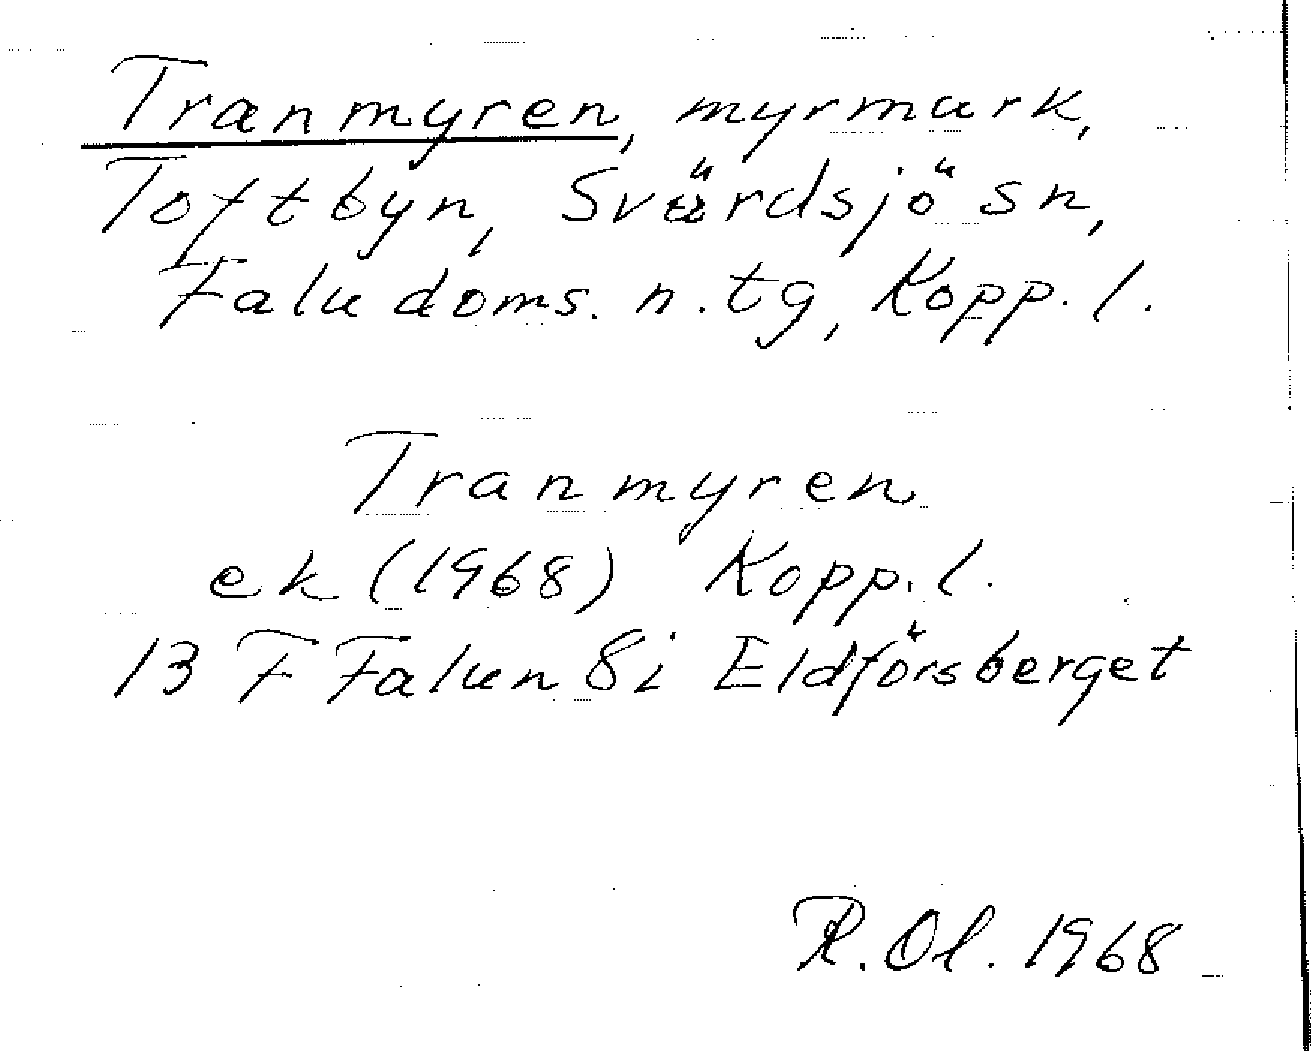 Tranmyren, myrmark,
Toftbyn, Svärdsjö sn,
Falu doms. n. tg, Kopp. l.
Tranmyren
ek (1968) Kopp. l.
13 F Falun 8i Eldförsberget
R. Ol. 1968